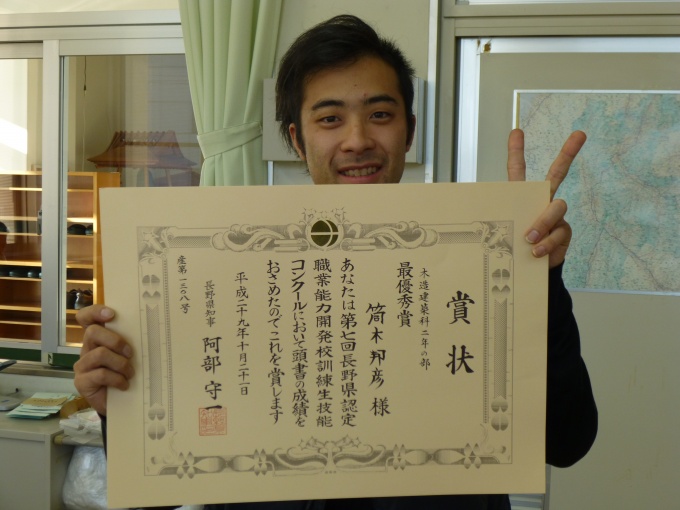 賞状
木造建築科二年の部
最優秀賞
筒木邦彦様
あなたは第七回長野県認定
職業能力開発校訓練生技能
コンクールにおいて頭書の成績を
おさめたのでこれを賞します
平成二十九年十月二十一日
長野県知事 阿部守一
産第一三〇八号